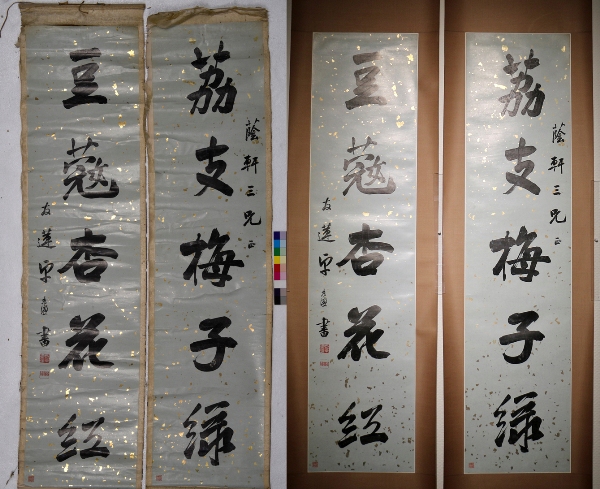 荔支梅子绿
蔭軒三兄正
豆蔻杏花红
友蓮
書
荔支梅子绿
蔭軒三兄正
豆蔻杏花红
友蓮
書